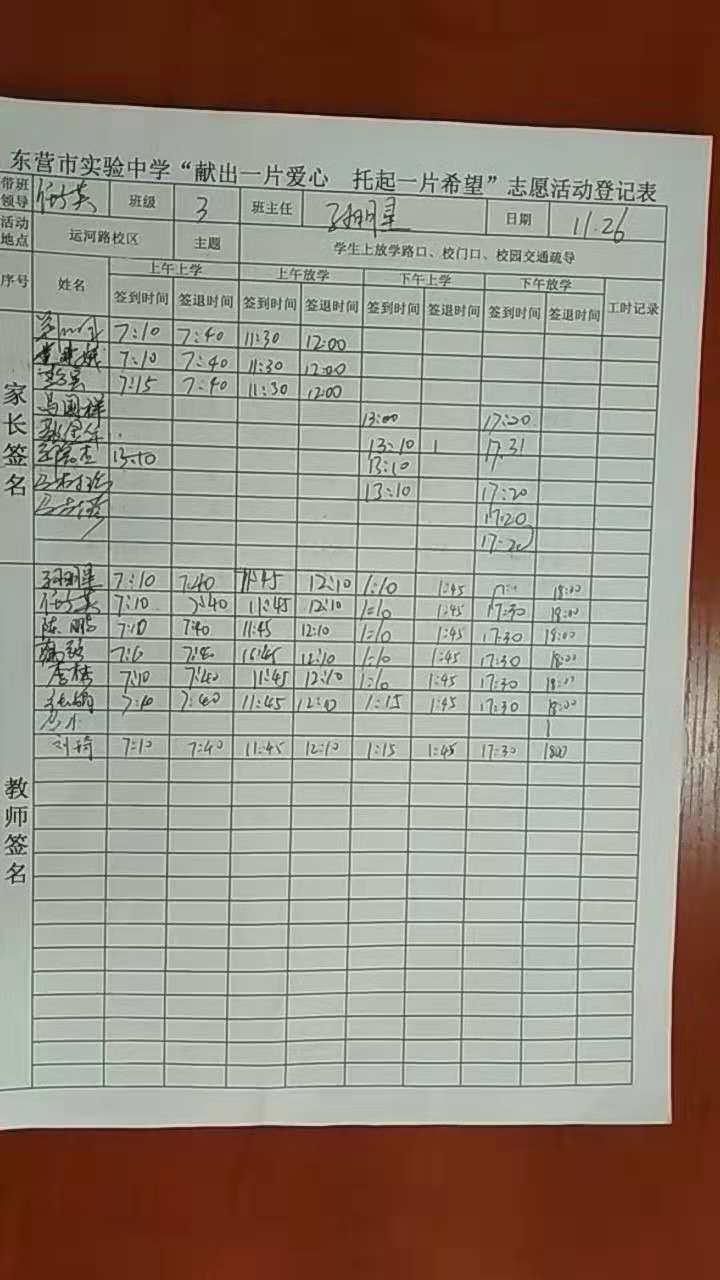 东营市实验中学“献出一片爱心 托起一片希望”志愿活动登记表
带班领导 班级 3 班主任 孙明星 日期 11.26
活动地点 运河路校区 主题 学生上放学路口、校门口、校园交通疏导
序号 姓名 上午上学 上午放学 下午上学 下午放学 工时记录
签到时间 签退时间 签到时间 签退时间 签到时间 签退时间 签到时间 签退时间
家长签名
7:10 7:40 11:30 12:00
7:10 7:40 11:30 12:00
7:15 7:40 11:30 12:00
马国祥 13:00 17:20
13:10 17.31
13:10 13:10
13:10 17:20
17:20
17:20
教师签名
孙明星 7:10 7:40 11:45 12:10 1:10 1:45 18:00
7:10 7:40 11:45 12:10 1:10 1:45 17:30 18:00
陈鹏 7:10 7:40 11:45 12:10 1:10 1:45 17:30 18:00
7:40 12:10 1:10 1:45 17:30 18:00
李梅 7:10 7:40 11:45 12:10 1:10 1:45 17:30 18:00
7:40 11:45 12:10 1:15 1:45 17:30 18:00
刘琦 7:10 7:40 11:45 12:10 1:15 1:45 17:30 1800